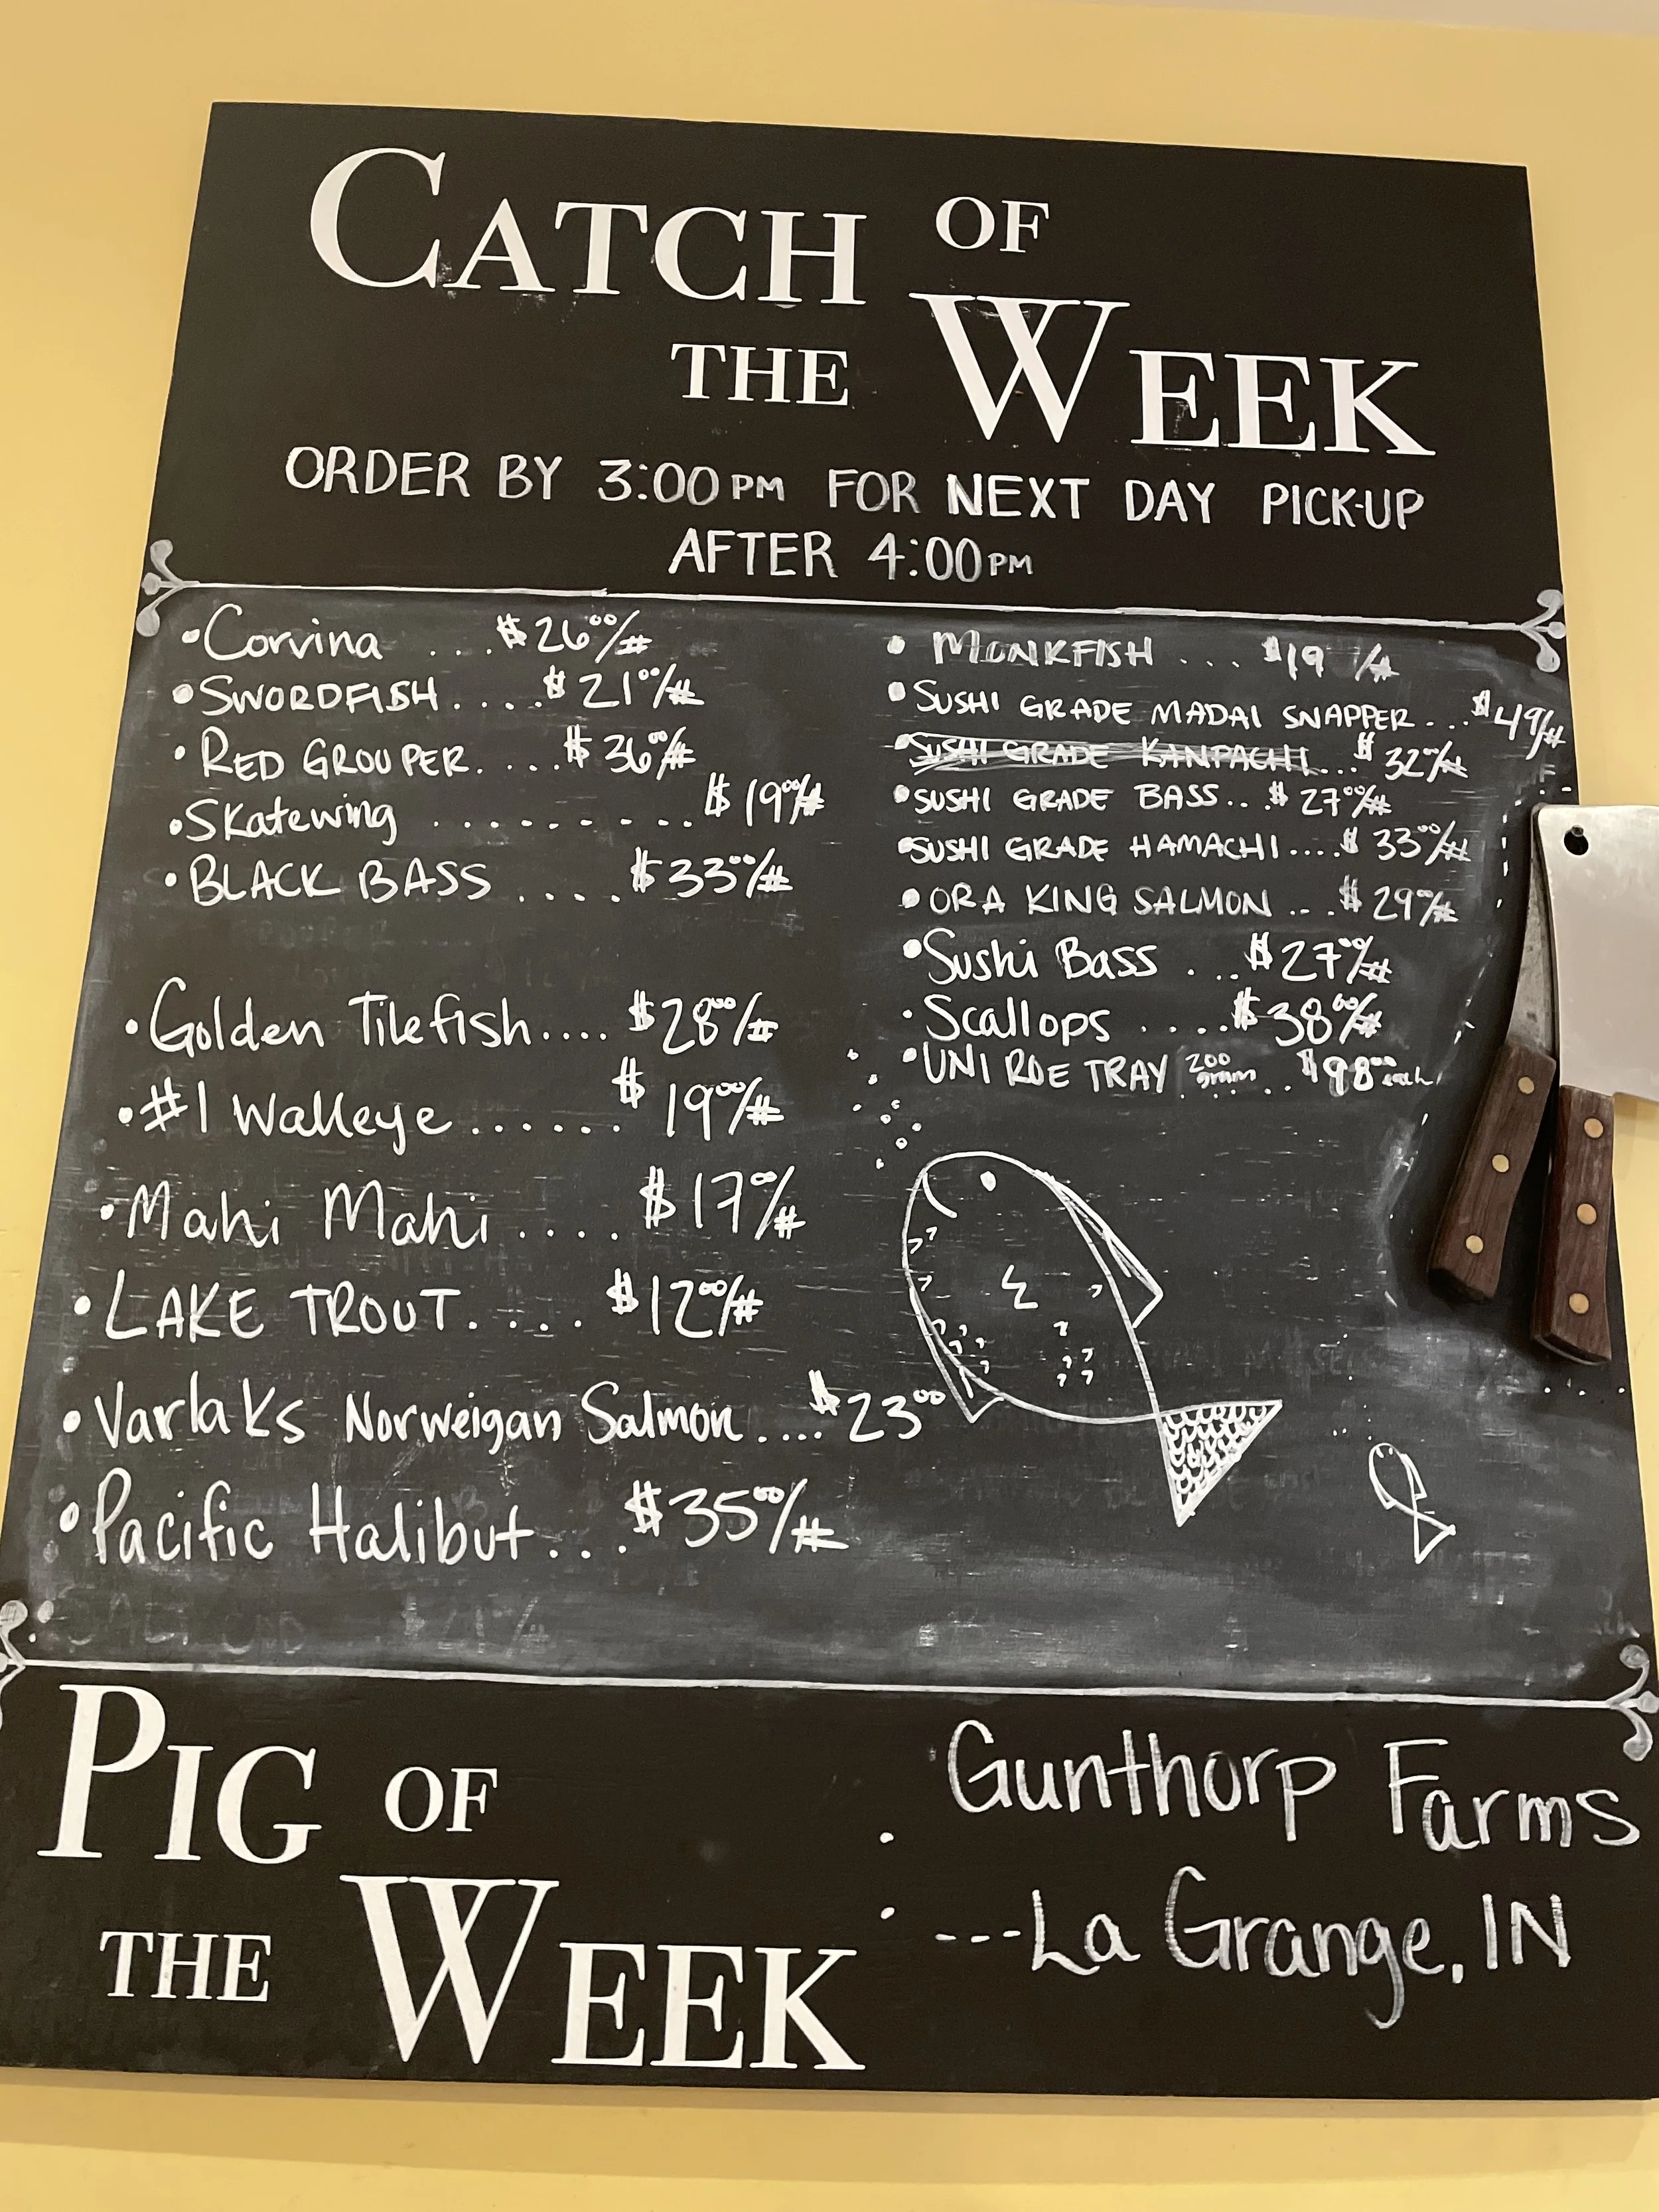 CATCH OF
THE WEEK
ORDER BY 3:00 PM FOR NEXT DAY PICK-UP
AFTER 4:00 PM
• Corvina ... $26⁰⁰/#
• SWORDFISH .... $21⁰⁰/#
• RED GROUPER. ... $36⁰⁰/#
• Skatewing ......... $19⁰⁰/#
• BLACK BASS .... $33⁰⁰/#
• Golden Tilefish.... $28⁰⁰/#
• #1 Walleye ...... $19⁰⁰/#
• Mahi Mahi .... $17⁰⁰/#
• LAKE TROUT. .... $12⁰⁰/#
• Varlaks Norweigan Salmon .... $23⁰⁰
• Pacific Halibut... $35⁰⁰/#
• MONKFISH ... $19 /#
• SUSHI GRADE MADAI SNAPPER... $49/#
• SUSHI GRADE KANPACHI... $32⁰⁰/#
• SUSHI GRADE BASS.. $27⁰⁰/#
• SUSHI GRADE HAMACHI.... $33⁰⁰/#
• ORA KING SALMON ... $29⁰⁰/#
• Sushi Bass ... $27⁰⁰/#
• Scallops .... $38⁰⁰/#
• UNI ROE TRAY 200 gram .. $98⁰⁰ each
PIG OF
THE WEEK
: Gunthorp Farms
---La Grange, IN